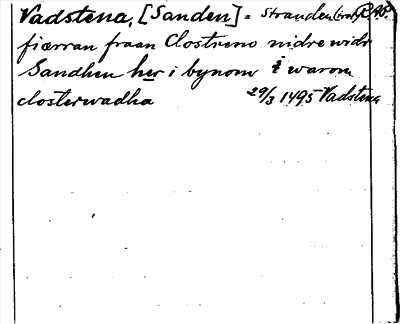 Vadstena, [Sanden] = Stranden
fiærran fraan Clostreno nidre widr
Sandhen her i bynom i warom
closterwadha 29/3 1495 Vadstena